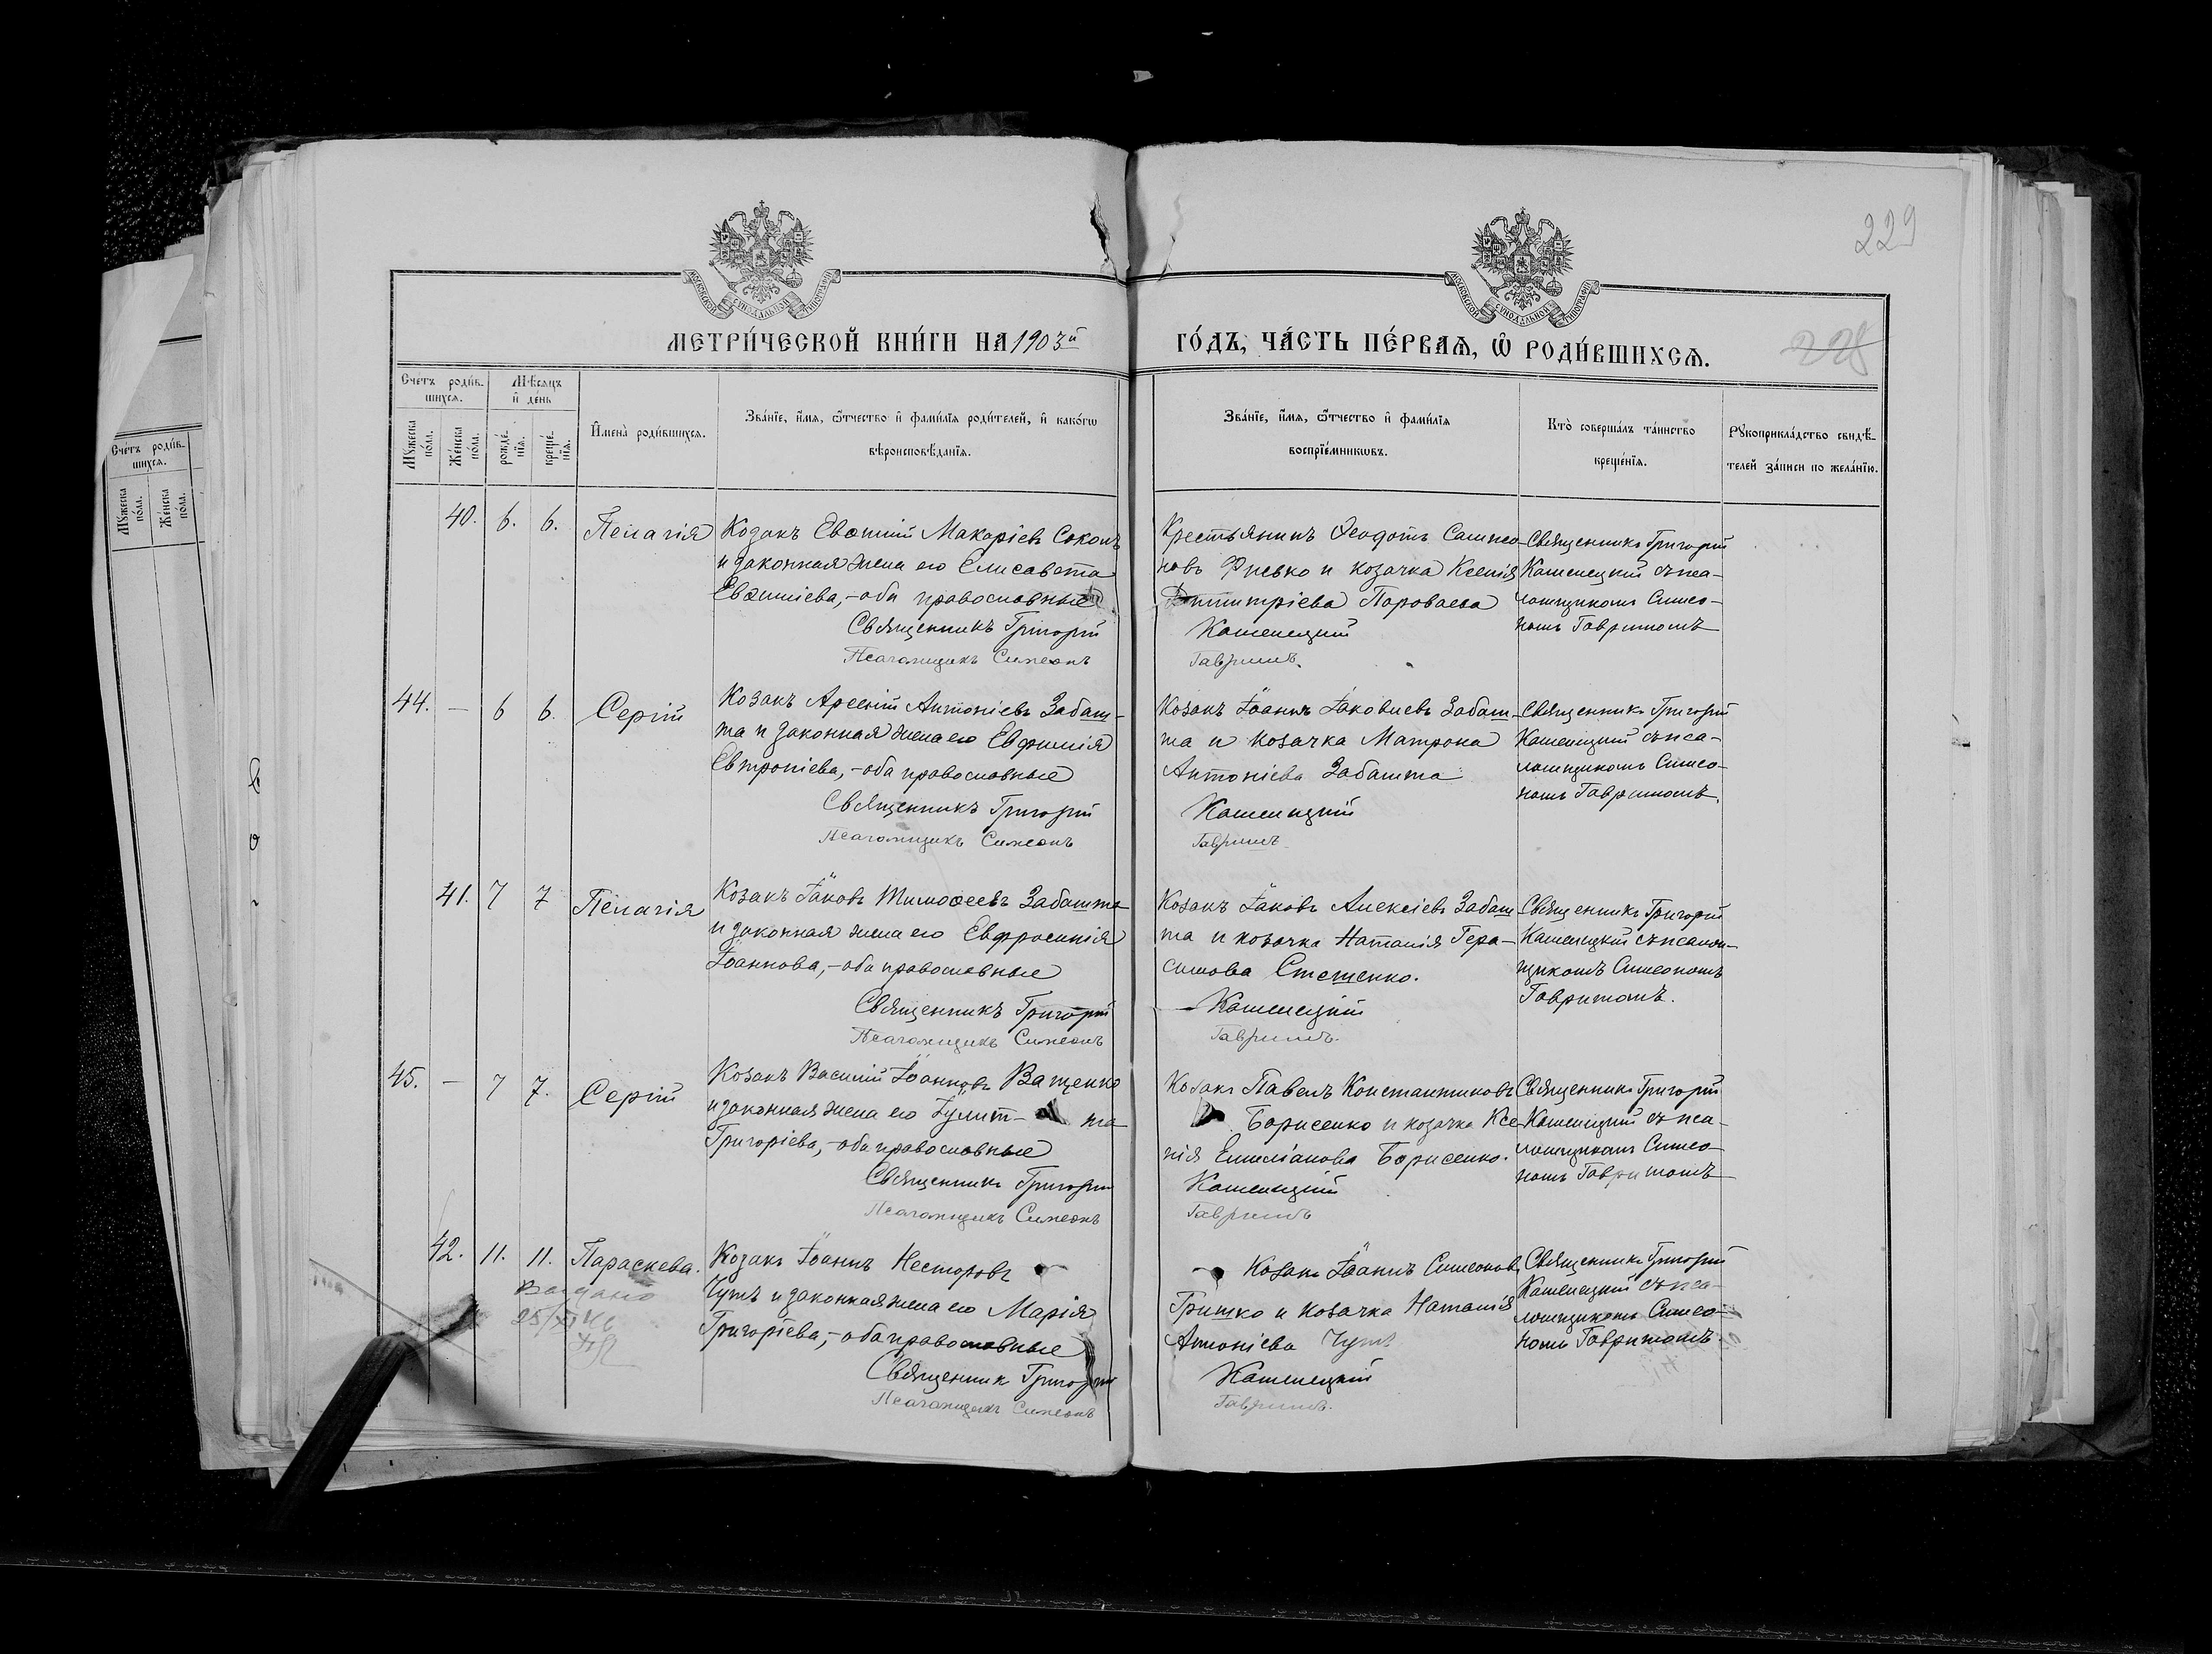 229
МЕТРИ́ЧЕСКОЙ КНИ́ГИ НА 1903й ГО́ДЪ, ЧА́СТЬ ПЕ́РВАѦ, Ѡ РОДИ́ВШИХСѦ.
228
Сче́тъ роди́в-
шихсѧ.
Мꙋ́жеска по́ла.
Же́нска по́ла.
Мѣ́сѧцъ
и҆ де́нь
рожде́-
нїѧ.
креще́-
нїѧ.
И҆мена̀ роди́вшихсѧ.
Зва́нїе, и҆́мѧ, ѻ҆́тчество и҆ фами́лїѧ роди́телей, и҆ како́гѡ
вѣроисповѣ́данїѧ.
Зва́нїе, и҆́мѧ, ѻ҆́тчество и҆ фами́лїѧ
воспрїе́мникѡвъ.
Кто̀ соверша́лъ та́инство
креще́нїѧ.
Рꙋкоприкла́дство свидѣ́-
телей за́писи по жела́нїю.
40. 6. 6. Пелагія
Козакъ Евѳимій Макаріевъ Соколъ
и законная жена его Елисавета
Евѳиміева,- оба православные
Священникъ Григорій
Псаломщикъ Симеонъ
Крестьянинъ Ѳеодотъ Сампсо-
новъ Фисько и козачка Ксенія
Димитріева
Каменецкій
Гавришъ.
Священникъ Григорій
Каменецкій съ пса-
ломщикомъ Симео-
номъ Гавришомъ
44. — 6 6. Сергій
Козакъ Арсеній Антоніевъ Забаш-
та и законная жена его Евфимія
Евтропіева,- оба православные
Священникъ Григорій
Псаломщикъ Симеонъ
Козакъ Іоаннъ Іаковлевъ Забаш-
та и козачка Матрона
Антоніева Забашта
Каменецкій
Гавришъ
Священникъ Григорій
Каменецкій съ пса-
ломщикомъ Симео-
номъ Гавришомъ.
41. 7 7 Пелагія
Козакъ Іаковъ Тимоѳеевъ Забашта
и законная жена его Евфросинія
Іоаннова,- оба православные
Священникъ Григорій
Псаломщикъ Симеонъ
Козакъ Іаковъ Алексіевъ Забаш
та и козачка Наталія Гера-
симова Стешенко.
Каменецкій
Гавришъ.
Священникъ Григорій
Каменецкій съ псалом-
щикомъ Симеономъ
Гавришомъ.
45. — 7 7. Сергій
Козакъ Василій Іоанновъ Ващенко
и законная жена его Іулит- та
Григоріева,- оба православные
Священникъ Григорій
Псаломщикъ Симеонъ
Козакъ Павелъ Константиновъ
Борисенко и козачка Ксе-
нія Емиліанова Борисенко.
Каменецкій
Гавришъ
Священникъ Григорій
Каменецкій съ пса-
ломщикомъ Симео-
номъ Гавришомъ
42. 11. 11. Параскева.
Выдано
25/XI 46
Козакъ Іоаннъ Несторовъ
Чупъ и законная жена его Марія
Григоріева,- оба православные
Священник Григорій
Псаломщикъ Симеонъ
Козакъ Іоаннъ Симеоновъ
Гришко и козачка Наталія
Антоніева Чупъ
Каменецкій
Гавришъ.
Священникъ Григорій
Каменецкій съ пса-
ломщикомъ Симео-
номъ Гавришомъ.